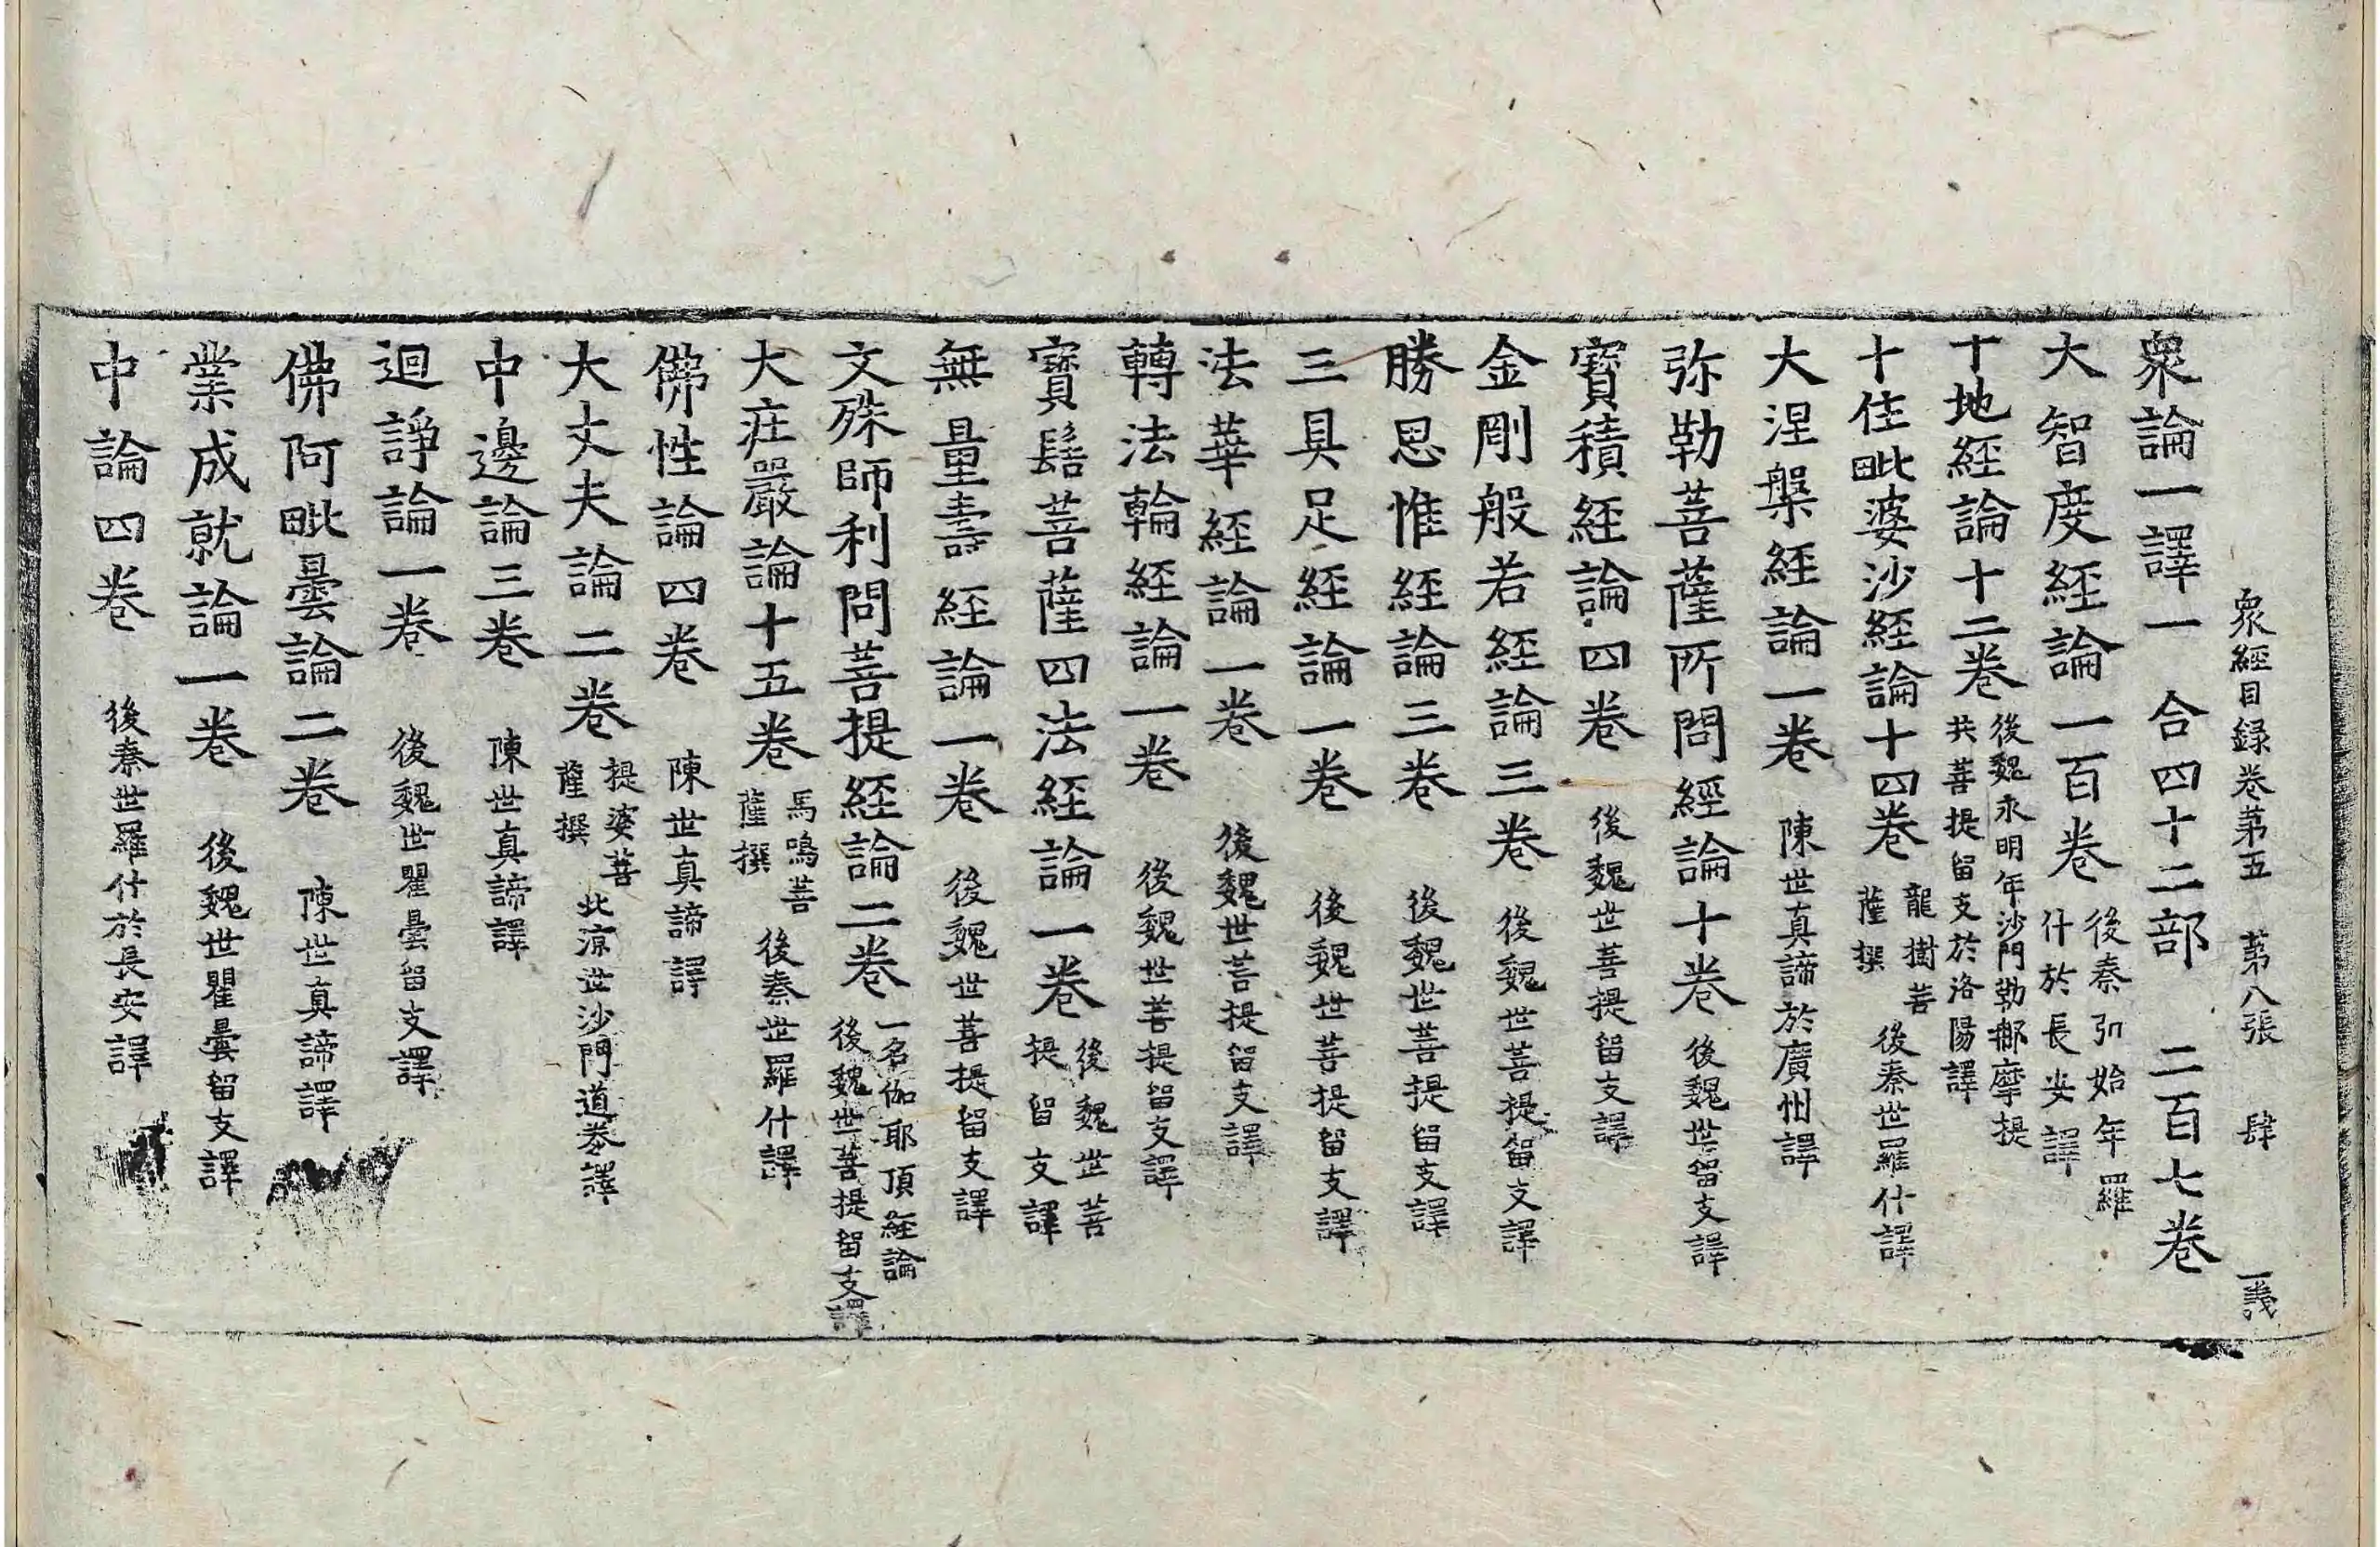 衆經目録卷第五 第八張 肆 義
衆論一譯一 合四十二部 二百七卷
大智度經論一百卷 後秦弘始年羅什於長安譯
十地經論十二卷 後魏永明年沙門勒那摩提共菩提留支於洛陽譯
十住毗婆沙經論十四卷 龍樹菩薩撰 後秦世羅什譯
大涅槃經論一卷 陳世真諦於廣州譯
弥勒菩薩所問經論十卷 後魏世留支譯
寶積經論四卷 後魏世菩提留支譯
金剛般若經論三卷 後魏世菩提留支譯
勝思惟經論三卷 後魏世菩提留支譯
三具足經論一卷 後魏世菩提留支譯
法華經論一卷 後魏世菩提留支譯
轉法輪經論一卷 後魏世菩提留支譯
寶髻菩薩四法經論一卷 後魏世菩提留支譯
無量壽經論一卷 後魏世菩提留支譯
文殊師利問菩提經論二卷 一名伽耶頂經論 後魏世菩提留支譯
大莊嚴論十五卷 馬鳴菩薩撰 後秦世羅什譯
佛性論四卷 陳世真諦譯
大丈夫論二卷 提婆菩薩撰 北涼世沙門道泰譯
中邊論三卷 陳世真諦譯
迴諍論一卷 後魏世瞿曇留支譯
佛阿毗曇論二卷 陳世真諦譯
業成就論一卷 後魏世瞿曇留支譯
中論四卷 後秦世羅什於長安譯